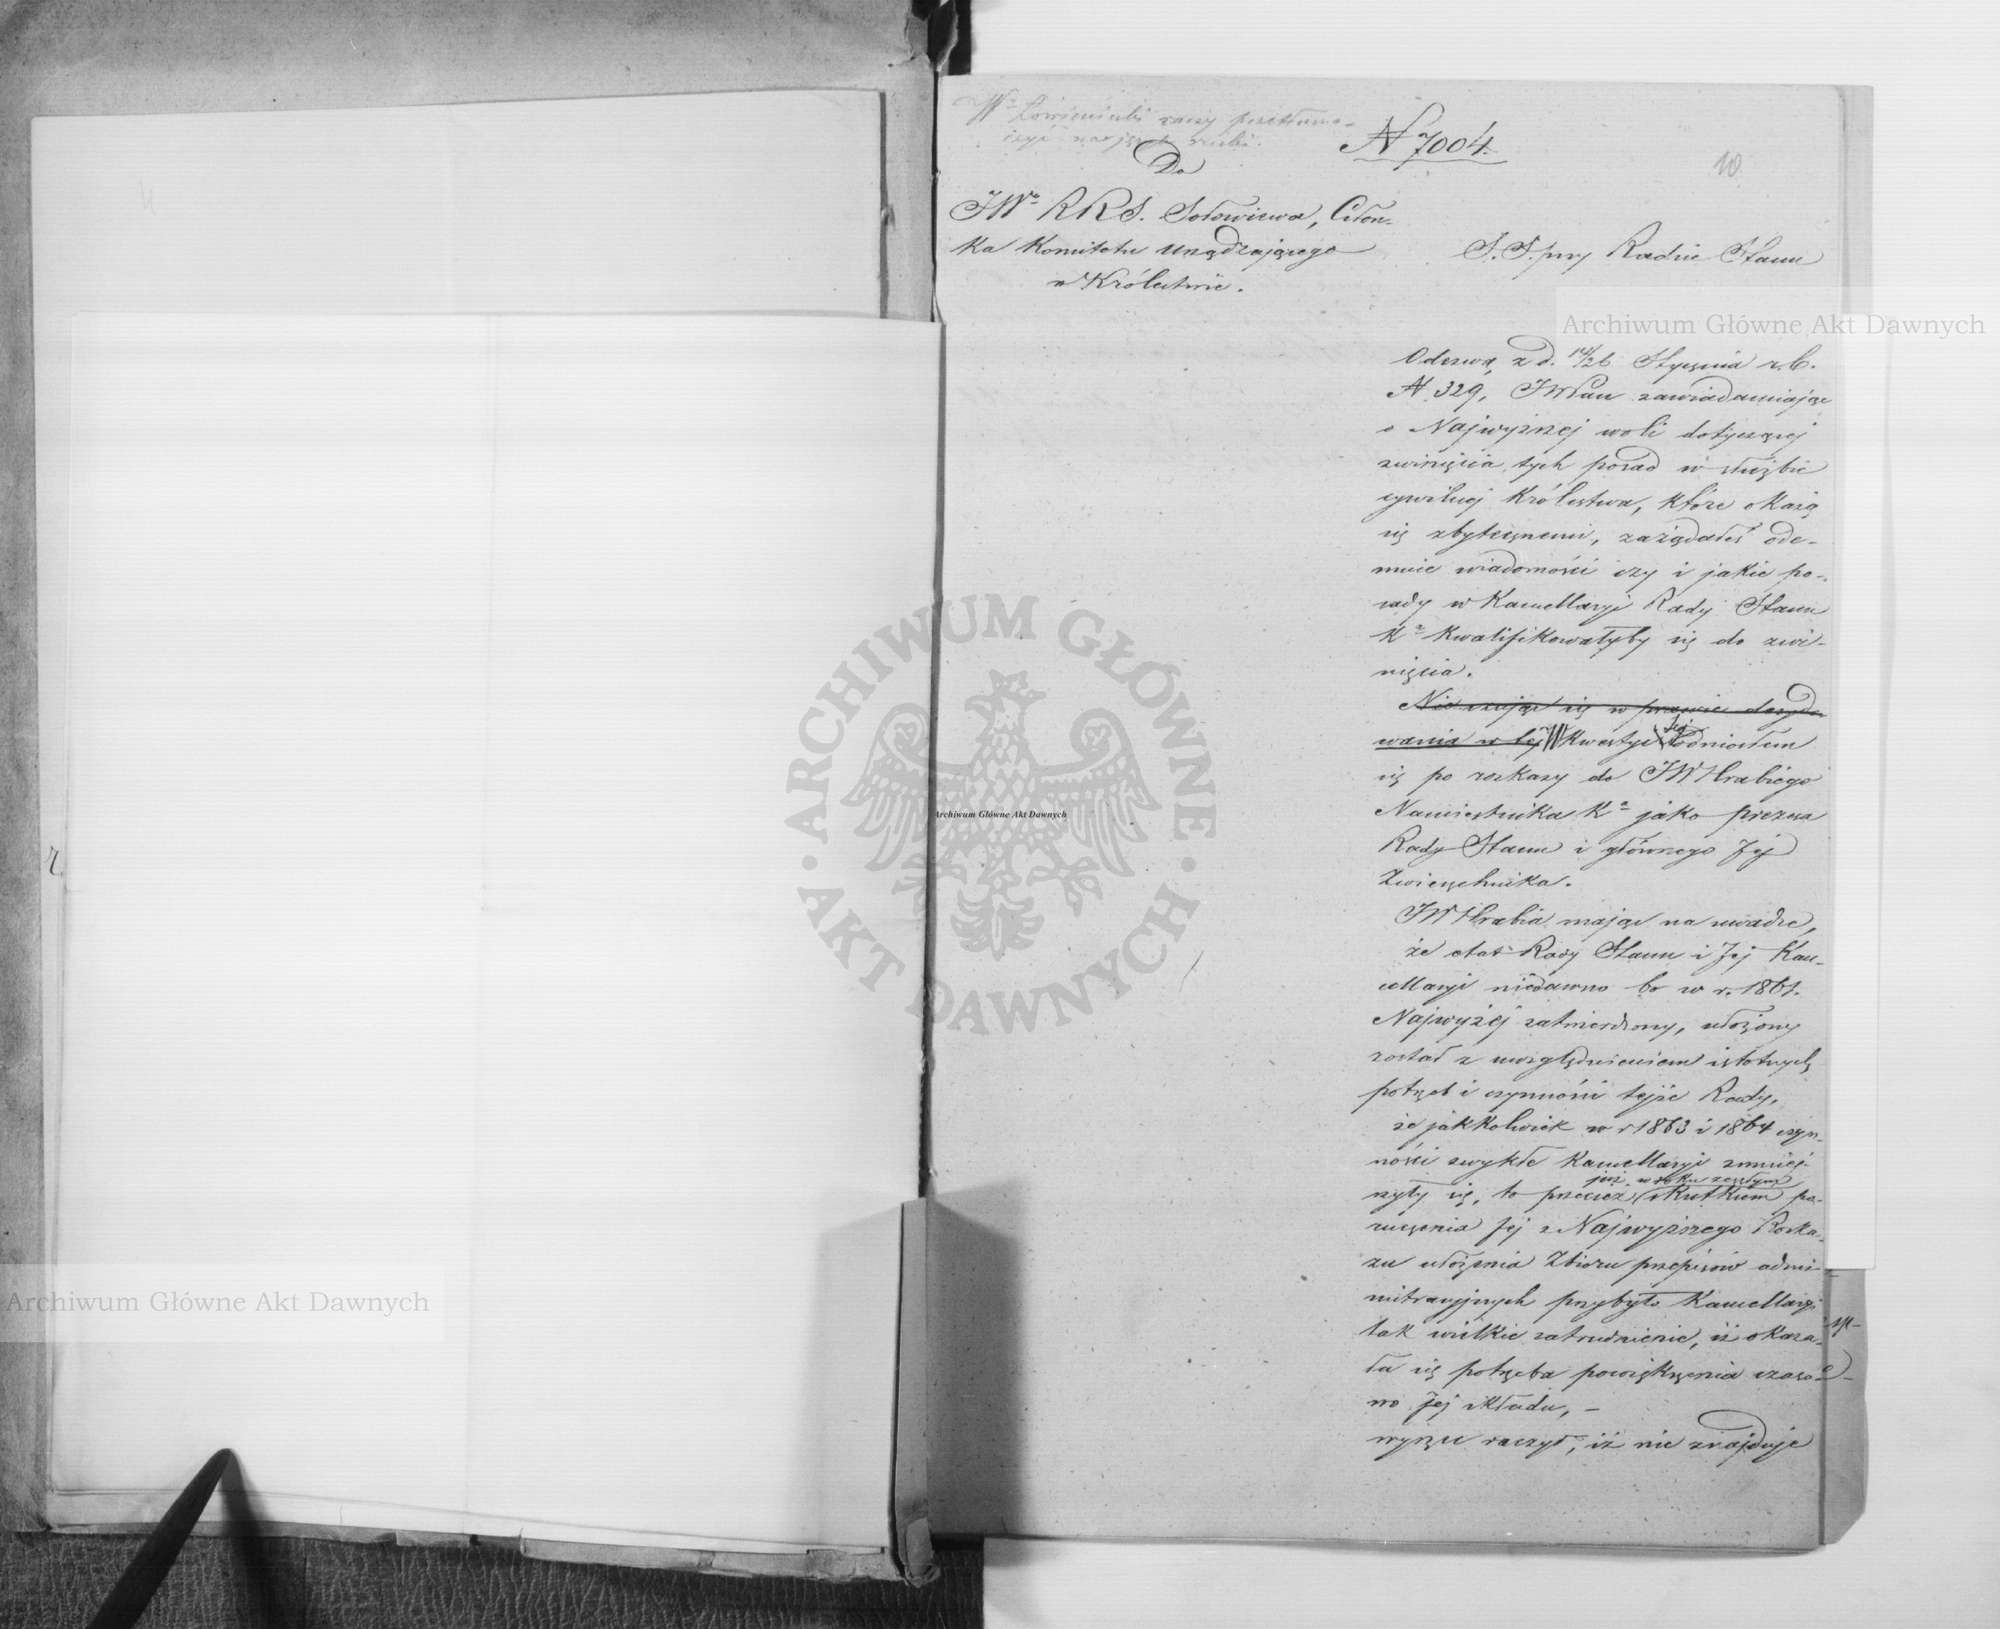 Wº raczy przetłuma-
czyć na język ruski.
N 7004.
10
Do
JWº RRS. Sołowiewa, Człon-
ka Komitetu Urządzającego
w Królestwie.
S. S. przy Radzie Stanu
Odezwą z d. 14/26 Stycznia r. b.
N 329, JWPan zawiadamiając
o Najwyższej woli dotyczącej
zwinięcia tych posad w służbie
cywilnej Królestwa, które okażą
się zbytecznemi, zażądałeś ode-
mnie wiadomości czy i jakie po-
sady w Kancellaryi Rady Stanu
Kª kwalifikowałyby się do zwi-
nięcia.
Nie czując się w prawie decydo
wania w tej W kwestyi tej odniosłem
się po rozkazy do JWHrabiego
Namiestnika Kª jako prezesa
Rady Stanu i głównego Jej
Zwierzchnika.
JWHrabia mając na uwadze,
że etat Rady Stanu i Jej Kan-
cellaryi niedawno bo w r. 1861.
Najwyżej zatwierdzony, ułożony
został z uwzględnieniem istotnych
potrzeb i czynności tejże Rady,
że jakkolwiek w r 1863 i 1864 czyn-
ności zwykłe Kancellaryi zmniej-
już w roku zeszłym
szyły się, to przecież skutkiem po-
ruczenia Jej z Najwyższego Rozka-
zu ułożenia Zbioru przepisów admi-
nistracyjnych przybyło Kancellaryi
tak wielkie zatrudnienie, iż okaza-
ła się potrzeba powiększenia czaso-
wo Jej składu, –
wyrzec raczył, iż nie znajduje
Archiwum Główne Akt Dawnych
Archiwum Główne Akt Dawnych
Archiwum Główne Akt Dawnych
ARCHIWUM GŁÓWNE AKT DAWNYCH